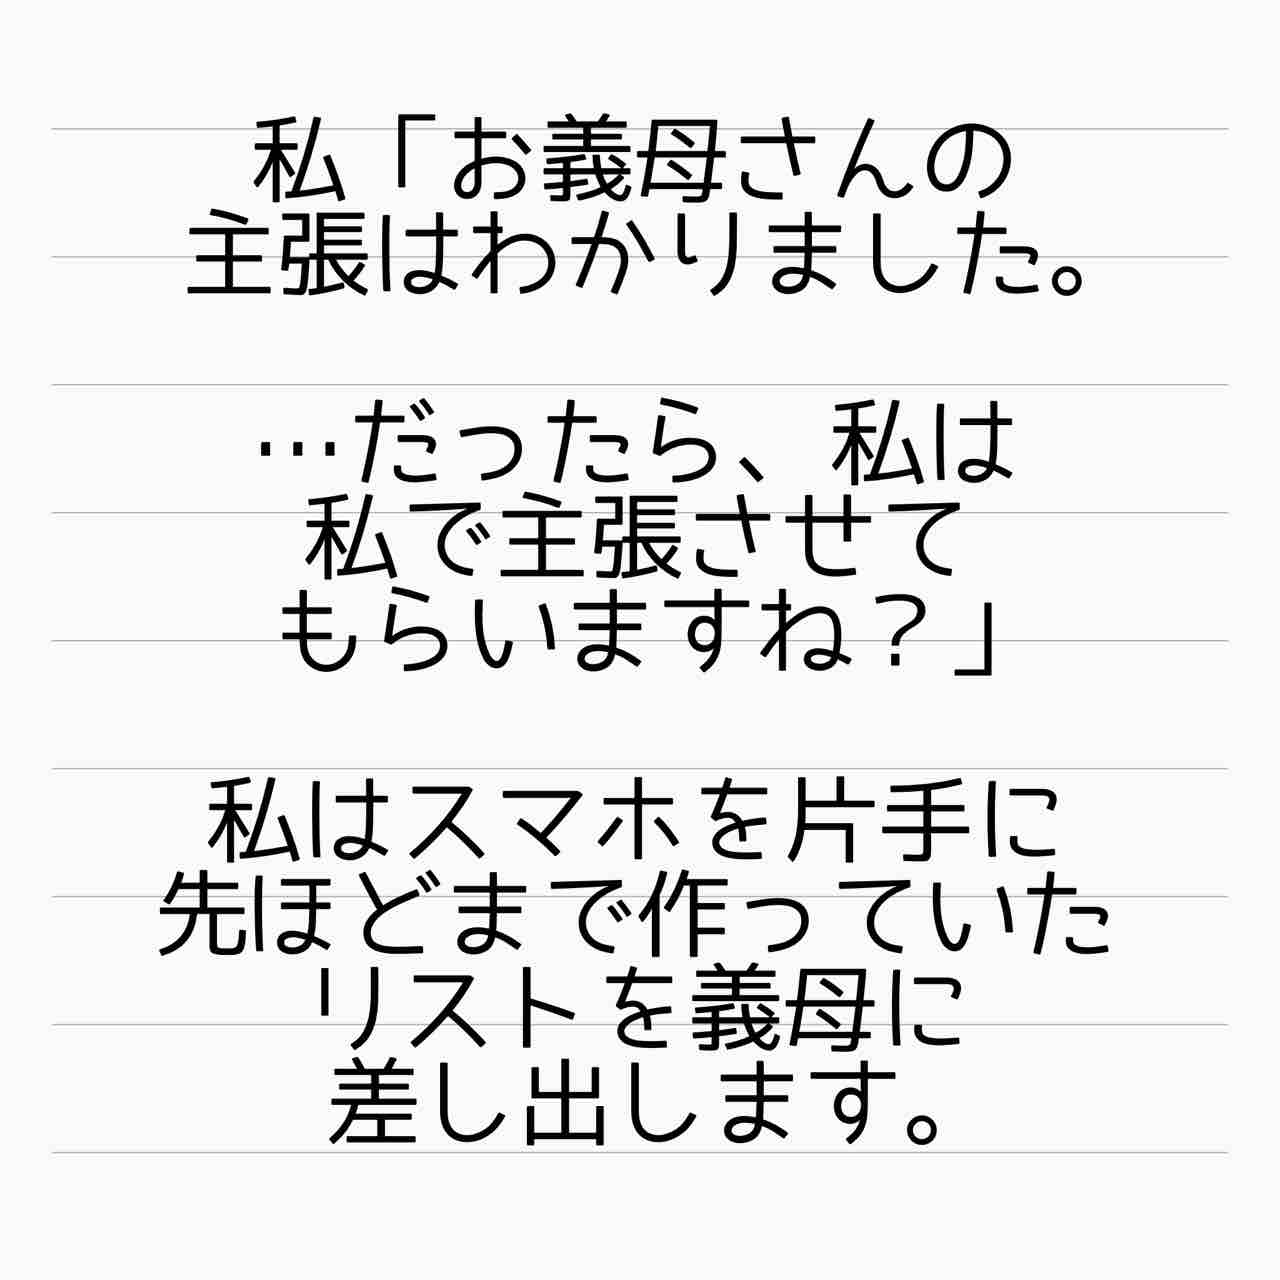 私「お義母さんの
主張はわかりました。
…だったら、私は
私で主張させて
もらいますね？」
私はスマホを片手に
先ほどまで作っていた
リストを義母に
差し出します。